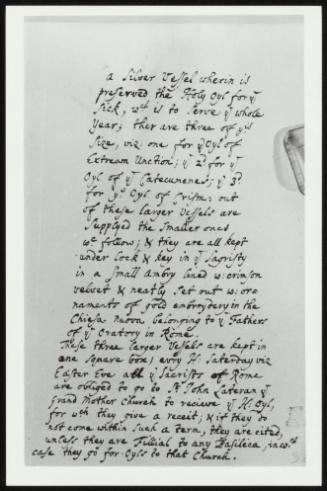 a Silver Vessel wherein is
preserved the Holy Oyl for yᵉ
Sick, wᶜʰ is to serve yᵉ whole
year; ther are three of yⁱˢ
Size, viz: one for yᵉ Oyl of
Extream Unction; yᵉ 2ᵈ for yᵉ
Oyl of yᵉ Catecumenes; yᵉ 3ᵈ
for yᵉ Oyl of Crism: out
of these larger Vessels are
Supplyed the Smaller ones
wᶜ follows; & they are all kept
under lock & key in yᵉ Sagristy
in a Small Ambry lined w: crimson
velvet & neatly Set out w: or=
naments of gold embrodery in the
Chiesa nuova belonging to yᵉ Fathers
of yᵉ Oratory in Rome.
These three larger Vessels are kept in
one Square box; evry H. Saterday viz
Easter Eve all yᵉ Sacrists of Rome
are obliged to go to St. John Lateran yᵉ
grand Mother Church to recieve yᵉ H: Oyl,
for wᶜʰ they give a receit; & if they do
not come within Such a term, they are cited,
unless they are Fillial to any Basilica, in wᶜʰ
case they go for Oyls to that Church.